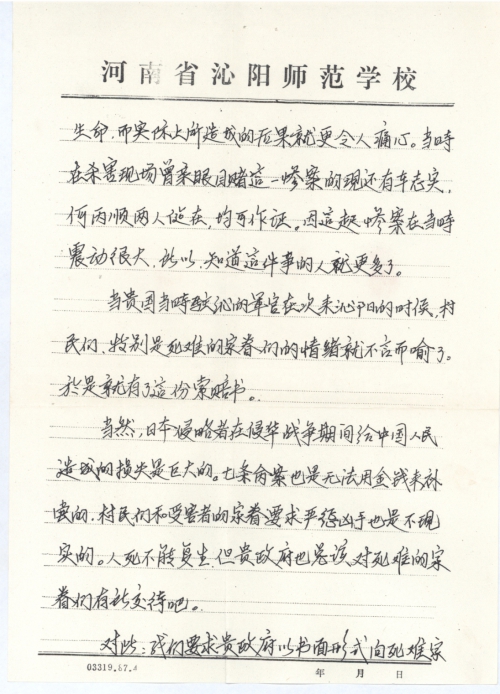 河南省沁阳师范学校
生命,而实际上所造成的后果就更令人痛心。当時
在杀害现场曾亲眼目睹這一惨案的现还有车志实,
何丙顺两人还在,均可作证。因這起惨案在当時
震动很大,所以,知道這件事的人就更多了。
当贵国当時驻沁的军官在次来沁阳的时候,村
民们,特别是死难的家眷们的情绪就不言而喻了。
於是就有了這份索赔书。
当然,日本侵略者在侵华战争期间给中国人民
造成的损失是巨大的。七条命案也是无法用金钱来补
卖的,村民们和受害者的家眷要求严惩凶手也是不现
实的。人死不能复生,但贵政府也总该对死难的家
眷们有所交待吧。
对此:我们要求贵政府以书面形式向死难家
03319.67.8 年 月 日